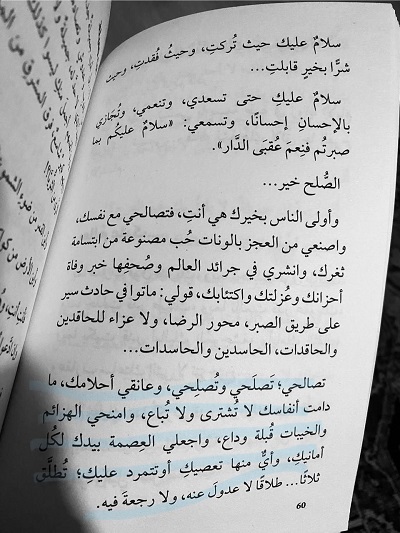 سلامٌ عليك حيث تُركتِ، وحيثُ فُقدتِ، وحيث
شرًّا بخيرٍ قابلتِ...
سلامٌ عليكِ حتى تسعدي، وتنعمي، وتُجَازي
بالإحسانِ إحسانًا، وتسمعي: «سلامٌ عليكُم بما
صبرتُم فنِعمَ عُقبَى الدَّار».
الصُّلح خير...
وأولى الناس بخيرك هي أنتِ، فتصالحي مع نفسك،
واصنعي من العجز بالونات حُب مصنوعة من ابتسامة
ثغرك، وانشري في جرائد العالم وصُحفِها خبر وفاة
أحزانك وعُزلتك واكتئابك، قولي: ماتوا في حادث سير
على طريق الصبر، محور الرضا، ولا عزاء للحاقدين
والحاقدات، الحاسدين والحاسدات...
تصالحي؛ تَصلَحي وتُصلِحي، وعانقي أحلامك، ما
دامت أنفاسك لا تُشترى ولا تُباع، وامنحي الهزائم
والخيبات قُبلة وداع، واجعلي العِصمة بيدك لكُل
أمانيكِ، وأيٌّ منها تعصيكِ أوتتمرد عليكِ؛ تُطلَّق
ثلاثًا... طلاقًا لا عدولَ عنه، ولا رجعةَ فيه.
60